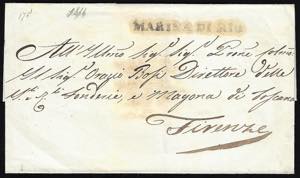 MARINA DI RIO
All' Illmo Sigr Sigr Prone Colmo
Il Sigr Orazio Direttore delle
Fonderie, e Magona di Toscana
Firenze